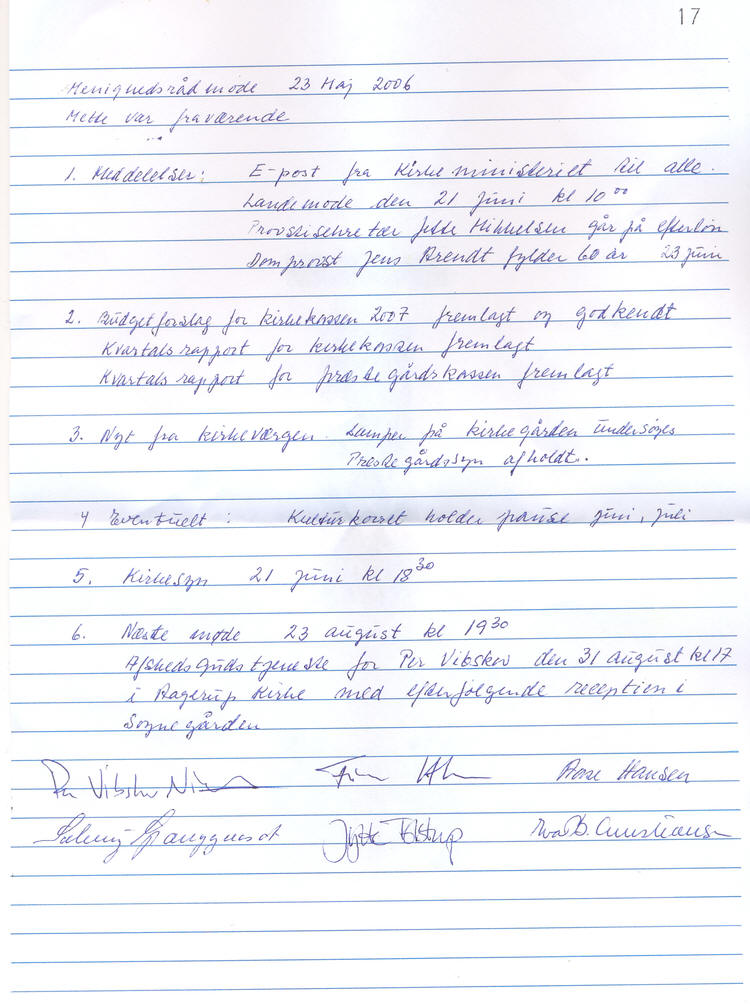 17
Menighedsråd møde 23 Maj 2006
Mette var fraværende
1. Meddelelser: E-post fra Kirkeministeriet til alle.
Landemode den 21 juni kl 10 00
Provstisekretær Jette Mikkelsen går på efterløn
Domprovst Jens Arendt fylder 60 år 23 juni
2. Budgetforslag for kirkekassen 2007 fremlagt og godkendt
Kvartalsrapport for kirkekassen fremlagt
Kvartalsrapport for præstegårdskassen fremlagt
3. Nyt fra kirkeværgen. Lamper på kirkegården undersøges
Præstegårdssyn afholdt.
4 Eventuelt: Kulturkoret holder pause juni, juli
5. Kirkesyn 21 juni kl 18 30
6. Næste møde 23 august kl 19 30
Afskedsgudstjeneste for Per Vibskov den 31 august kl 17
i Aagerup Kirke med efterfølgende reception i
Sognegården
Per Vibskov
Hansen
Jytte Tolstrup
Christiansen